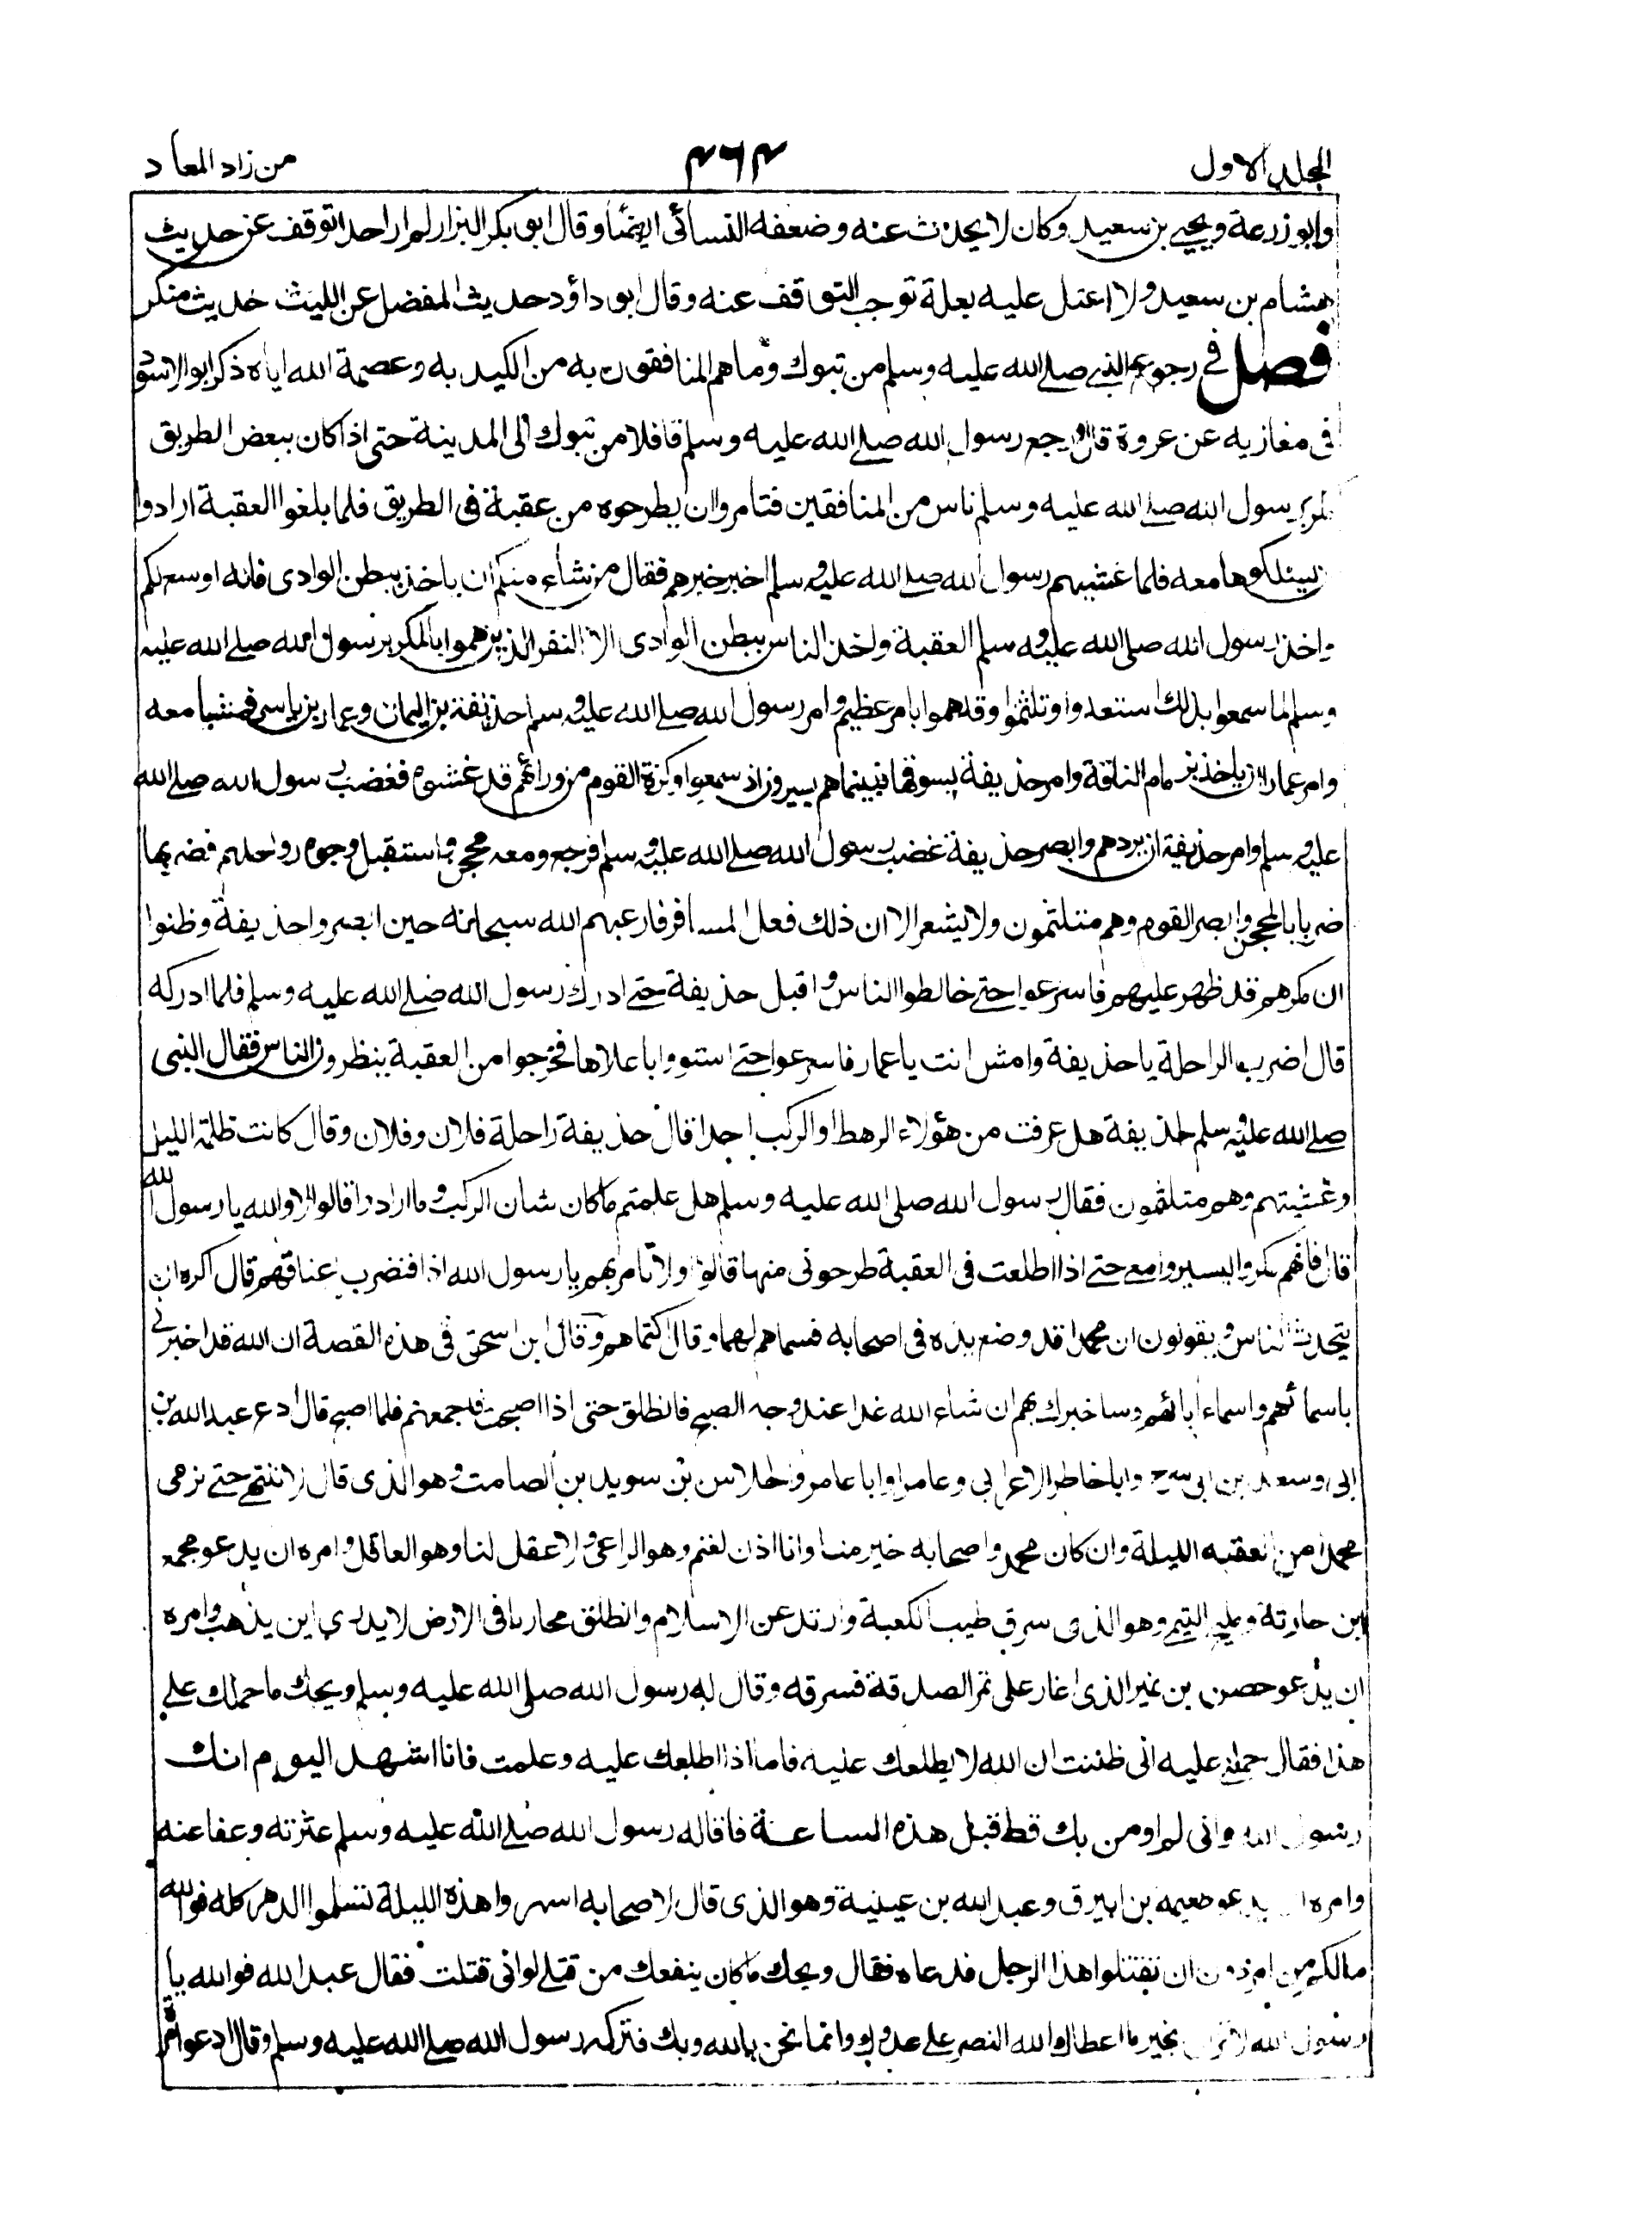 المجلد الاول
٤٦٤
من زاد المعاد
وابو زرعة ويحيى بن سعيد وكان لا يحدث عنه وضعفه النسائى ايضًا وقال ابو بكر البزار لم ار احدا توقف عن حديث
هشام بن سعيد ولا اعتل عليه بعلة توجب التوقف عنه وقال ابو داؤد حديث المفضل عن الليث حديث منكر
فصل فى رجوع النبى صلے الله عليه وسلم من تبوك وما هم المنافقون به من الكيد به وعصمة الله اياه ذكر ابو الاسود
فى مغازيه عن عروة قال ورجع رسول الله صلے الله عليه وسلم قافلا من تبوك الى المدينة حتى اذا كان ببعض الطريق
مكر برسول الله صلے الله عليه وسلم ناس من المنافقين فتامروا ان يطرحوه من عقبة فى الطريق فلما بلغوا العقبة ارادوا
ان يسلكوها معه فلما غشيهم رسول الله صلے الله عليه وسلم اخبر خبرهم فقال من شاء منكم ان ياخذ ببطن الوادى فانه اوسع لكم
واخذ رسول الله صلى الله عليه وسلم العقبة واخذ الناس ببطن الوادى الا النفر الذين هموا بالمكر برسول الله صلے الله عليه
وسلم لما سمعوا بذلك استعدوا وتلثموا وقد هموا بامر عظيم وامر رسول الله صلے الله عليه وسلم حذيفة بن اليمان وعمار بن ياسر فمشيا معه
وامر عمارا ان ياخذ بزمام الناقة وامر حذيفة يسوقها فبينما هم يسيرون اذ سمعوا وكزة القوم من ورائهم قد غشوه فغضب رسول الله صلے الله
عليه وسلم وامر حذيفة ان يردهم وابصر حذيفة غضب رسول الله صلے الله عليه وسلم فرجع ومعه محجن واستقبل وجوه رواحلهم فضربها
ضربا بالمحجن وابصر القوم وهم متلثمون ولا يشعر الا ان ذلك فعل المسافر فارعبهم الله سبحانه حين ابصروا حذيفة وظنوا
ان مكرهم قد ظهر عليهم فاسرعوا حتے خالطوا الناس واقبل حذيفة حتے ادرك رسول الله صلے الله عليه وسلم فلما ادركه
قال اضرب الراحلة يا حذيفة وامش انت يا عمار فاسرعوا حتے استووا باعلاها فخرجوا من العقبة ينظرون الناس فقال النبى
صلے الله عليه وسلم لحذيفة هل عرفت من هؤلاء الرهط او الركب احدا قال حذيفة راحلة فلان وفلان وقال كانت ظلمة الليل
وغشيتهم وهم متلثمون فقال رسول الله صلى الله عليه وسلم هل علمتم ما كان شان الركب وما ارادوا قالوا لا والله يا رسول الله
قال فانهم مكروا ليسيروا معے حتے اذا اطلعت فى العقبة طرحونى منها قالوا اولا تامر بهم يا رسول الله اذا فنضرب اعناقهم قال اكره ان
يتحدث الناس ويقولون ان محمدا قد وضع يده فى اصحابه فسماهم لهما وقال اكتماهم وقال ابن اسحق فى هذه القصة ان الله قد اخبرنى
باسمائهم واسماء ابائهم وساخبرك بهم ان شاء الله غدا عند وجه الصبح فانطلق حتى اذا اصبحت فاجمعهم فلما اصبح قال ادع عبد الله بن
ابى وسعد بن ابى سرح وابا خاطر الاعرابى وعامرا وابا عامر والجلاس بن سويد بن الصامت وهو الذى قال لا ننتهے حتے نرمى
محمدا من العقبه الليلة وان كان محمد واصحابه خير منا وانا اذن لغنم وهو الراعى ولا عقل لنا وهو العاقل وامره ان يدعو مجمع
ابن حارثة ومليح التيمے وهو الذى سرق طيب الكعبة وارتد عن الاسلام وانطلق محاربا فى الارض لا يدرى اين يذهب وامره
ان يدعو حصن بن نمير الذى اغار على تمر الصدقة فسرقه وقال له رسول الله صلى الله عليه وسلم ويحك ما حملك علے
هذا فقال حملنى عليه انى ظننت ان الله لا يطلعك عليه فاما اذا اطلعك عليه وعلمت فانا اشهد اليوم انك
رسول الله وانى لم اومن بك قط قبل هذه الساعة فاقاله رسول الله صلے الله عليه وسلم عثرته وعفا عنه
وامره ان يدعو طعيمة بن ابيرق وعبد الله بن عيينة وهو الذى قال لاصحابه اسهروا هذه الليلة تسلموا الدهر كله فوالله
ما لكم من امر دون ان تقتلوا هذا الرجل فدعاه فقال ويحك ما كان ينفعك من قتلے لو انى قتلت فقال عبد الله فوالله يا
رسول الله لا نزال بخير ما اعطاك الله النصر على عدوك وانما نحن بالله وبك فتركه رسول الله صلے الله عليه وسلم وقال ادعوا مرة